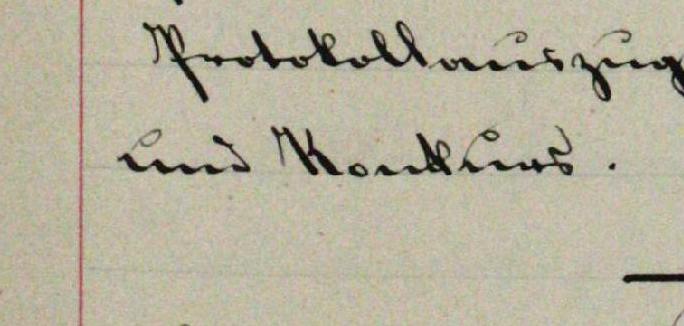 Protokollauszug
und Konkurs.